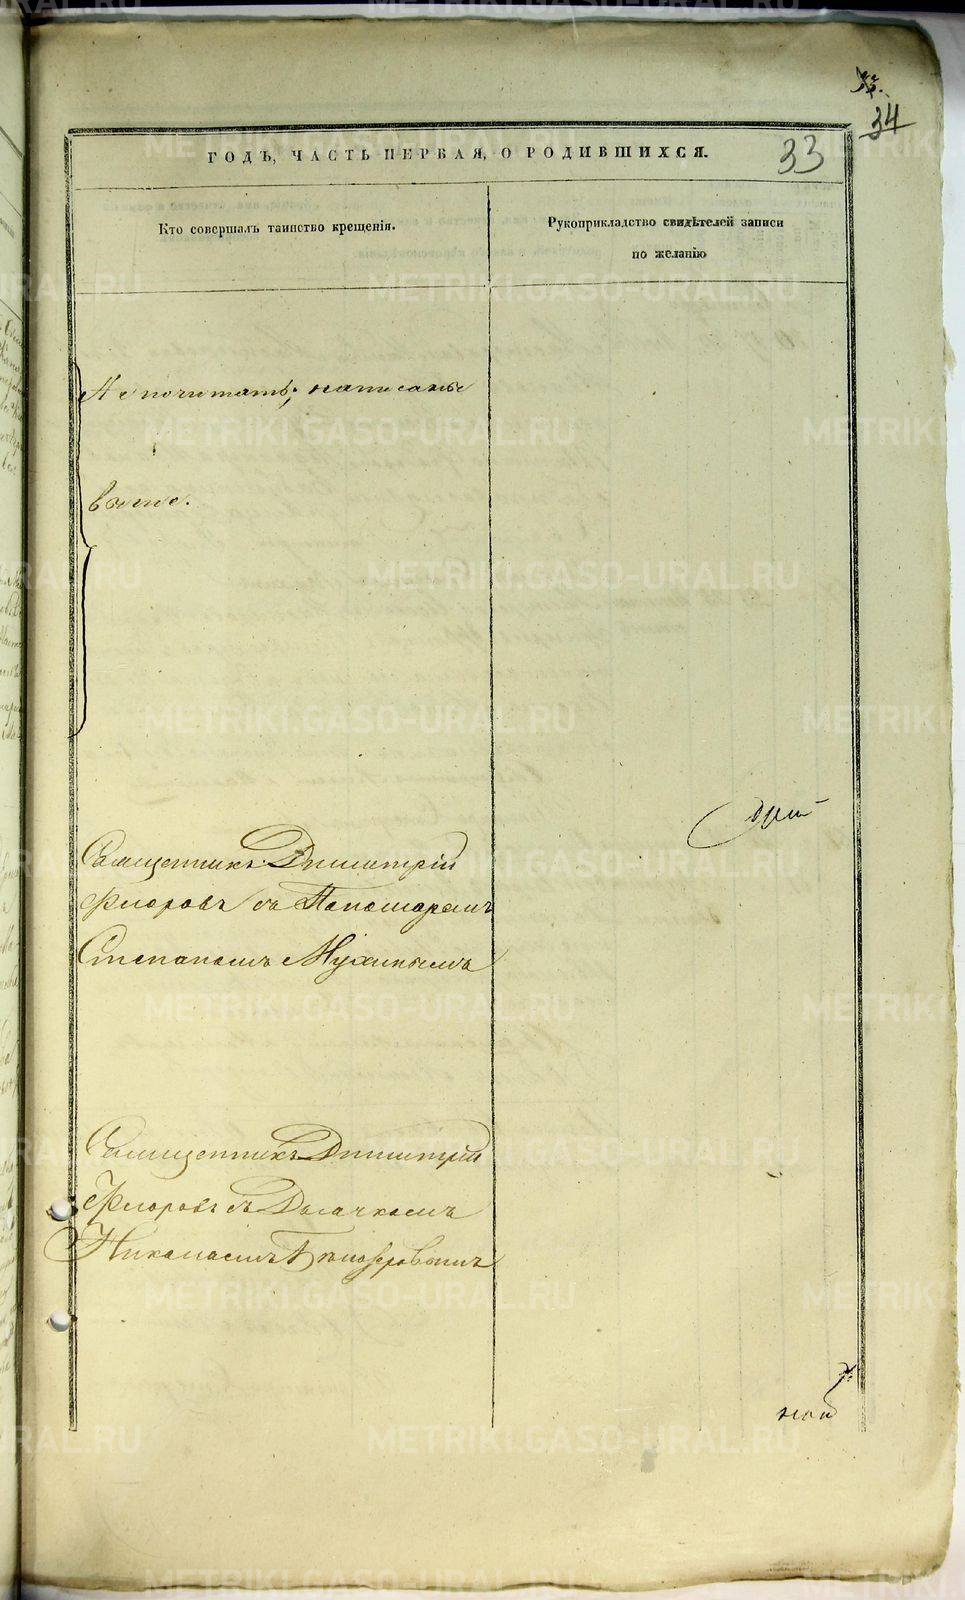 34
33
ГОДЪ, ЧАСТЬ ПЕРВАЯ, О РОДИВШИХСЯ.
Кто совершалъ таинство крещенія.
Рукоприкладство свидѣтелей записи
по желанію
Не почитать; написаны
выше.
Священникъ Димитрій
Флоровъ съ Пономаремъ
Степаномъ Мухинымъ
Священникъ Димитрій
Флоровъ съ Дьячкомъ
Николаемъ
METRIKI.GASO-URAL.RU